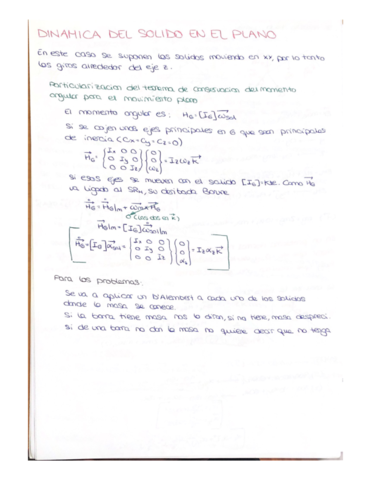 DINAMICA DEL SOLIDO EN EL PLANO
En este caso se suponen los solidos moviendo en xy, por lo tanto
los giros alrededor del eje z.
Particularización del teorema de conservación del momento
angular para el movimiento plano
El momento angular es: H_G = [I_G] ω_sol
Si se cojen unos ejes principales en G que sean principales
de inercia (Cx=Cy=Cz=0)
H_G = {Ix 0 0 / 0 Iy 0 / 0 0 Iz} {0 / 0 / ω_z} = Iz ω_z K
Si esos ejes se mueven con el solido [I_G]=kte. Como H_G
va ligado al SRm, su derivada Boure
H_G = H_G|m + ω x H_G
0 (los dos en K)
H_G|m = [I_G] ω_sol|m
H_G = [I_G] α_sol = {Ix 0 0 / 0 Iy 0 / 0 0 Iz} {0 / 0 / α_z} = Iz α_z K
Para los problemas:
Se va a aplicar un D'Alembert a cada uno de los solidos
donde la masa se conoce.
Si la barra tiene masa nos lo dirán, si no tiene, masa despreci.
Si de una barra no dan la masa no quiere decir que no tenga